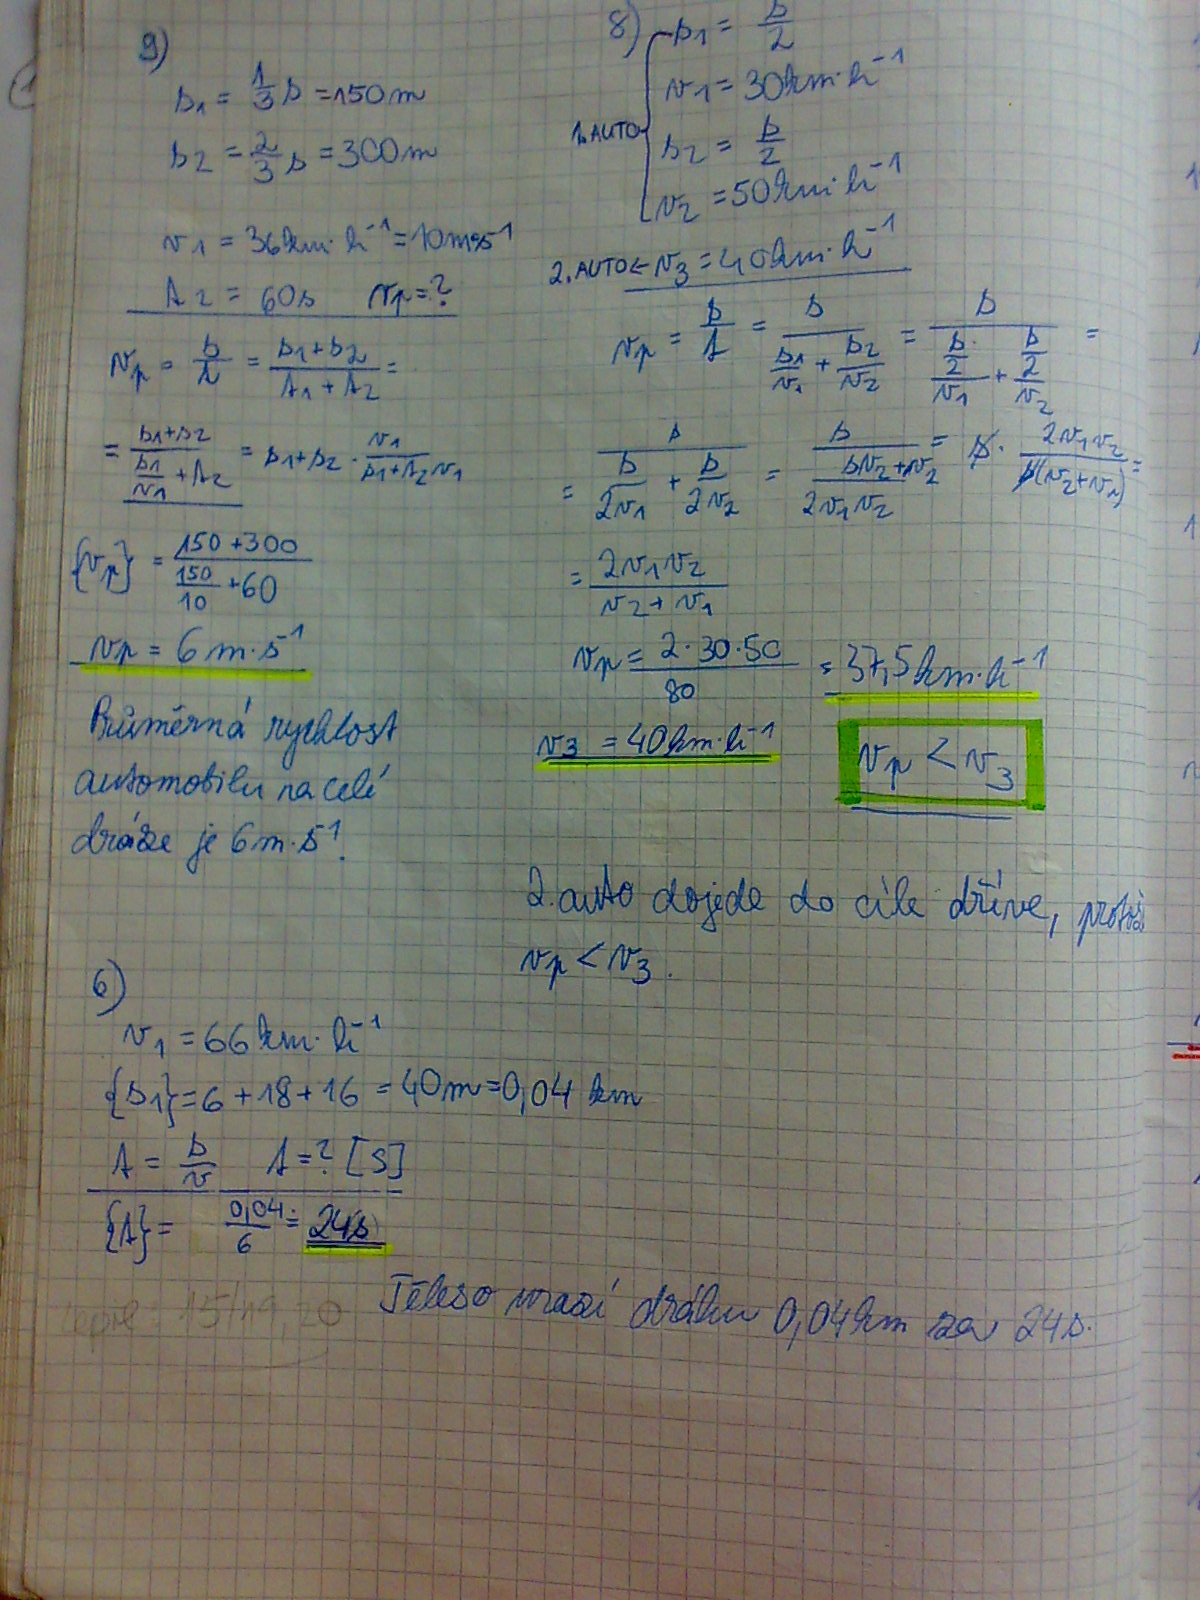 9)
s₁ = 1/3 s = 150m
s₂ = 2/3 s = 300m
v₁ = 36km·h⁻¹ = 10m·s⁻¹
t₂ = 60s vₚ = ?
vₚ = s/t = (s₁+s₂)/(t₁+t₂) =
= (s₁+s₂)/(s₁/v₁ + t₂) = s₁+s₂ · v₁/(s₁+t₂v₁)
{vₚ} = (150+300)/(150/10 + 60)
vₚ = 6m·s⁻¹
Průměrná rychlost
automobilu na celé
dráze je 6m·s⁻¹.
8)
1. AUTO
s₁ = s/2
v₁ = 30km·h⁻¹
s₂ = s/2
v₂ = 50km·h⁻¹
2. AUTO ← v₃ = 40km·h⁻¹
vₚ = s/t = s/(s₁/v₁ + s₂/v₂) = s/((s/2)/v₁ + (s/2)/v₂) =
= s/(s/2v₁ + s/2v₂) = s/((sv₂+v₂)/(2v₁v₂)) = s · 2v₁v₂/(s(v₂+v₁)) =
= 2v₁v₂/(v₂+v₁)
vₚ = (2·30·50)/80 = 37,5km·h⁻¹
v₃ = 40km·h⁻¹
vₚ < v₃
2. auto dojede do cíle dříve,
vₚ < v₃.
6)
v₁ = 66km·h⁻¹
{s₁} = 6 + 18 + 16 = 40m = 0,04 km
t = s/v t = ? [s]
{t} = 0,04/6 = 24s
Těleso urazí dráhu 0,04km za 24s.
15/19, 20